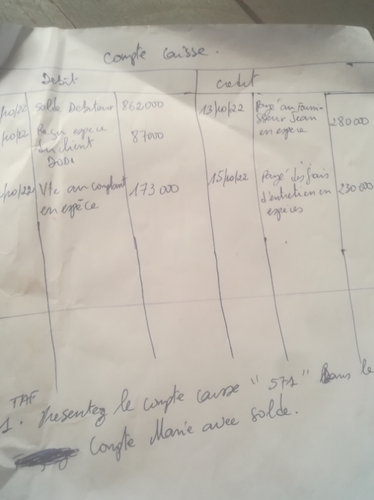 Compte Caisse.
Debit Credit
/10/22 Solde Debiteur 862000 13/10/22 Payé au Fournisseur Jean en espèce 280000
/10/22 Reçu espèce du client DODI 87000
/10/22 Vte au comptant en espèce 173 000 15/10/22 Payé les frais d'entretien en espèces 230 000
TAF
1. Presentez le compte caisse "571" Dans le
Compte Marié avec solde.